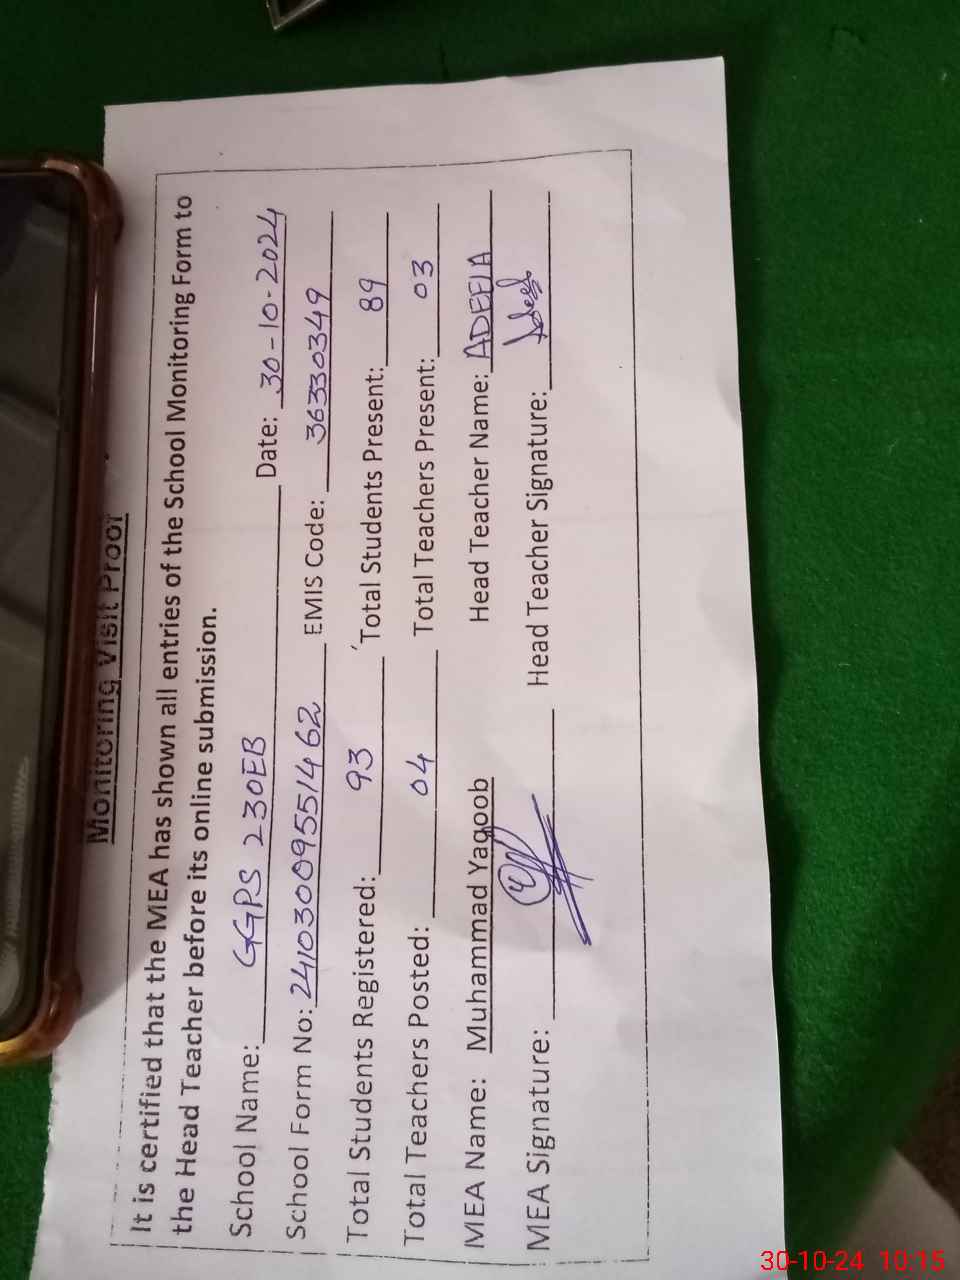 Monitoring Visit Proof
It is certified that the MEA has shown all entries of the School Monitoring Form to
the Head Teacher before its online submission.
School Name: GGPS 230EB Date: 30-10-2024
School Form No: 24103009551462 EMIS Code: 36330349
Total Students Registered: 93 Total Students Present: 89
Total Teachers Posted: 04 Total Teachers Present: 03
MEA Name: Muhammad Yaqoob Head Teacher Name: ADEELA
MEA Signature: Head Teacher Signature:
30-10-24 10:15